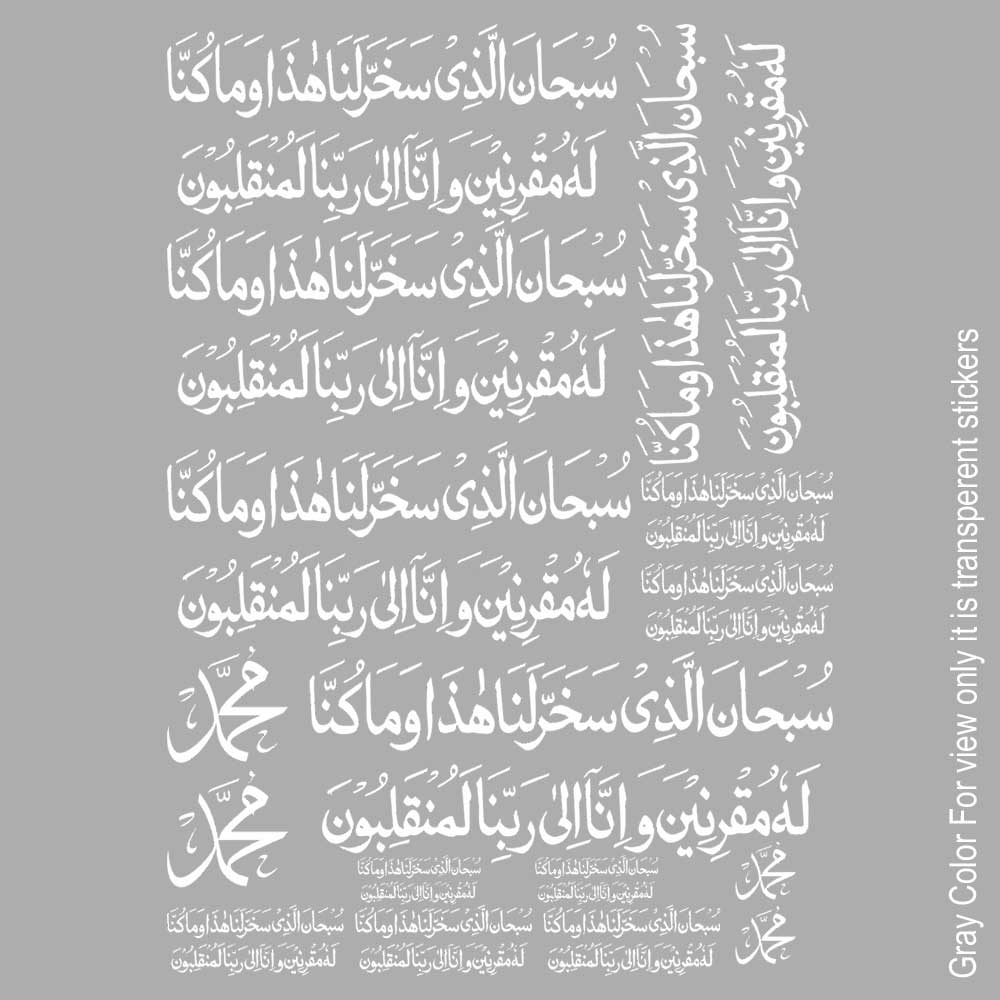 سُبْحَانَ الَّذِىْ سَخَّرَلَنَا هٰذَا وَمَا كُنَّا
لَهٗ مُقْرِنِيْنَ وَ اِنَّآ اِلىٰ رَبِّنَا لَمُنْقَلِبُوْنَ
سُبْحَانَ الَّذِىْ سَخَّرَلَنَا هٰذَا وَمَا كُنَّا
لَهٗ مُقْرِنِيْنَ وَ اِنَّآ اِلىٰ رَبِّنَا لَمُنْقَلِبُوْنَ
سُبْحَانَ الَّذِىْ سَخَّرَلَنَا هٰذَا وَمَا كُنَّا
لَهٗ مُقْرِنِيْنَ وَ اِنَّآ اِلىٰ رَبِّنَا لَمُنْقَلِبُوْنَ
سُبْحَانَ الَّذِىْ سَخَّرَلَنَا هٰذَا وَمَا كُنَّا
لَهٗ مُقْرِنِيْنَ وَ اِنَّآ اِلىٰ رَبِّنَا لَمُنْقَلِبُوْنَ
سُبْحَانَ الَّذِىْ سَخَّرَلَنَا هٰذَا وَمَا كُنَّا
لَهٗ مُقْرِنِيْنَ وَ اِنَّآ اِلىٰ رَبِّنَا لَمُنْقَلِبُوْنَ
سُبْحَانَ الَّذِىْ سَخَّرَلَنَا هٰذَا وَمَا كُنَّا
لَهٗ مُقْرِنِيْنَ وَ اِنَّآ اِلىٰ رَبِّنَا لَمُنْقَلِبُوْنَ
محمد
سُبْحَانَ الَّذِىْ سَخَّرَلَنَا هٰذَا وَمَا كُنَّا
محمد
لَهٗ مُقْرِنِيْنَ وَ اِنَّآ اِلىٰ رَبِّنَا لَمُنْقَلِبُوْنَ
سُبْحَانَ الَّذِىْ سَخَّرَلَنَا هٰذَا وَمَا كُنَّا
لَهٗ مُقْرِنِيْنَ وَ اِنَّآ اِلىٰ رَبِّنَا لَمُنْقَلِبُوْنَ
سُبْحَانَ الَّذِىْ سَخَّرَلَنَا هٰذَا وَمَا كُنَّا
لَهٗ مُقْرِنِيْنَ وَ اِنَّآ اِلىٰ رَبِّنَا لَمُنْقَلِبُوْنَ
محمد
سُبْحَانَ الَّذِىْ سَخَّرَلَنَا هٰذَا وَمَا كُنَّا
لَهٗ مُقْرِنِيْنَ وَ اِنَّآ اِلىٰ رَبِّنَا لَمُنْقَلِبُوْنَ
سُبْحَانَ الَّذِىْ سَخَّرَلَنَا هٰذَا وَمَا كُنَّا
لَهٗ مُقْرِنِيْنَ وَ اِنَّآ اِلىٰ رَبِّنَا لَمُنْقَلِبُوْنَ
سُبْحَانَ الَّذِىْ سَخَّرَلَنَا هٰذَا وَمَا كُنَّا
لَهٗ مُقْرِنِيْنَ وَ اِنَّآ اِلىٰ رَبِّنَا لَمُنْقَلِبُوْنَ
محمد
Gray Color For view only it is transperent stickers